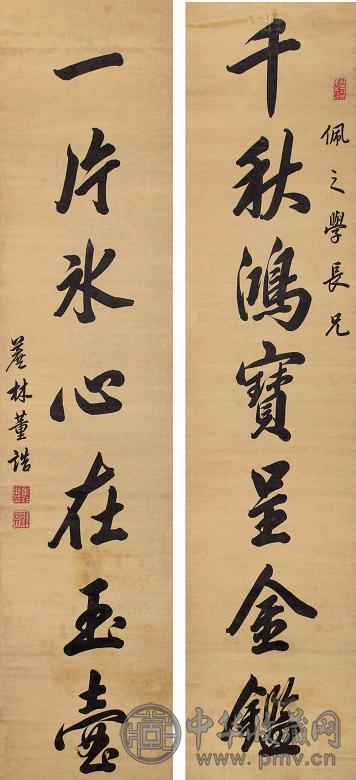 佩之學長兄
千秋鴻寶呈金鑑
一片冰心在玉壺
蔗林董誥
中华收藏网
www.pmv.cn